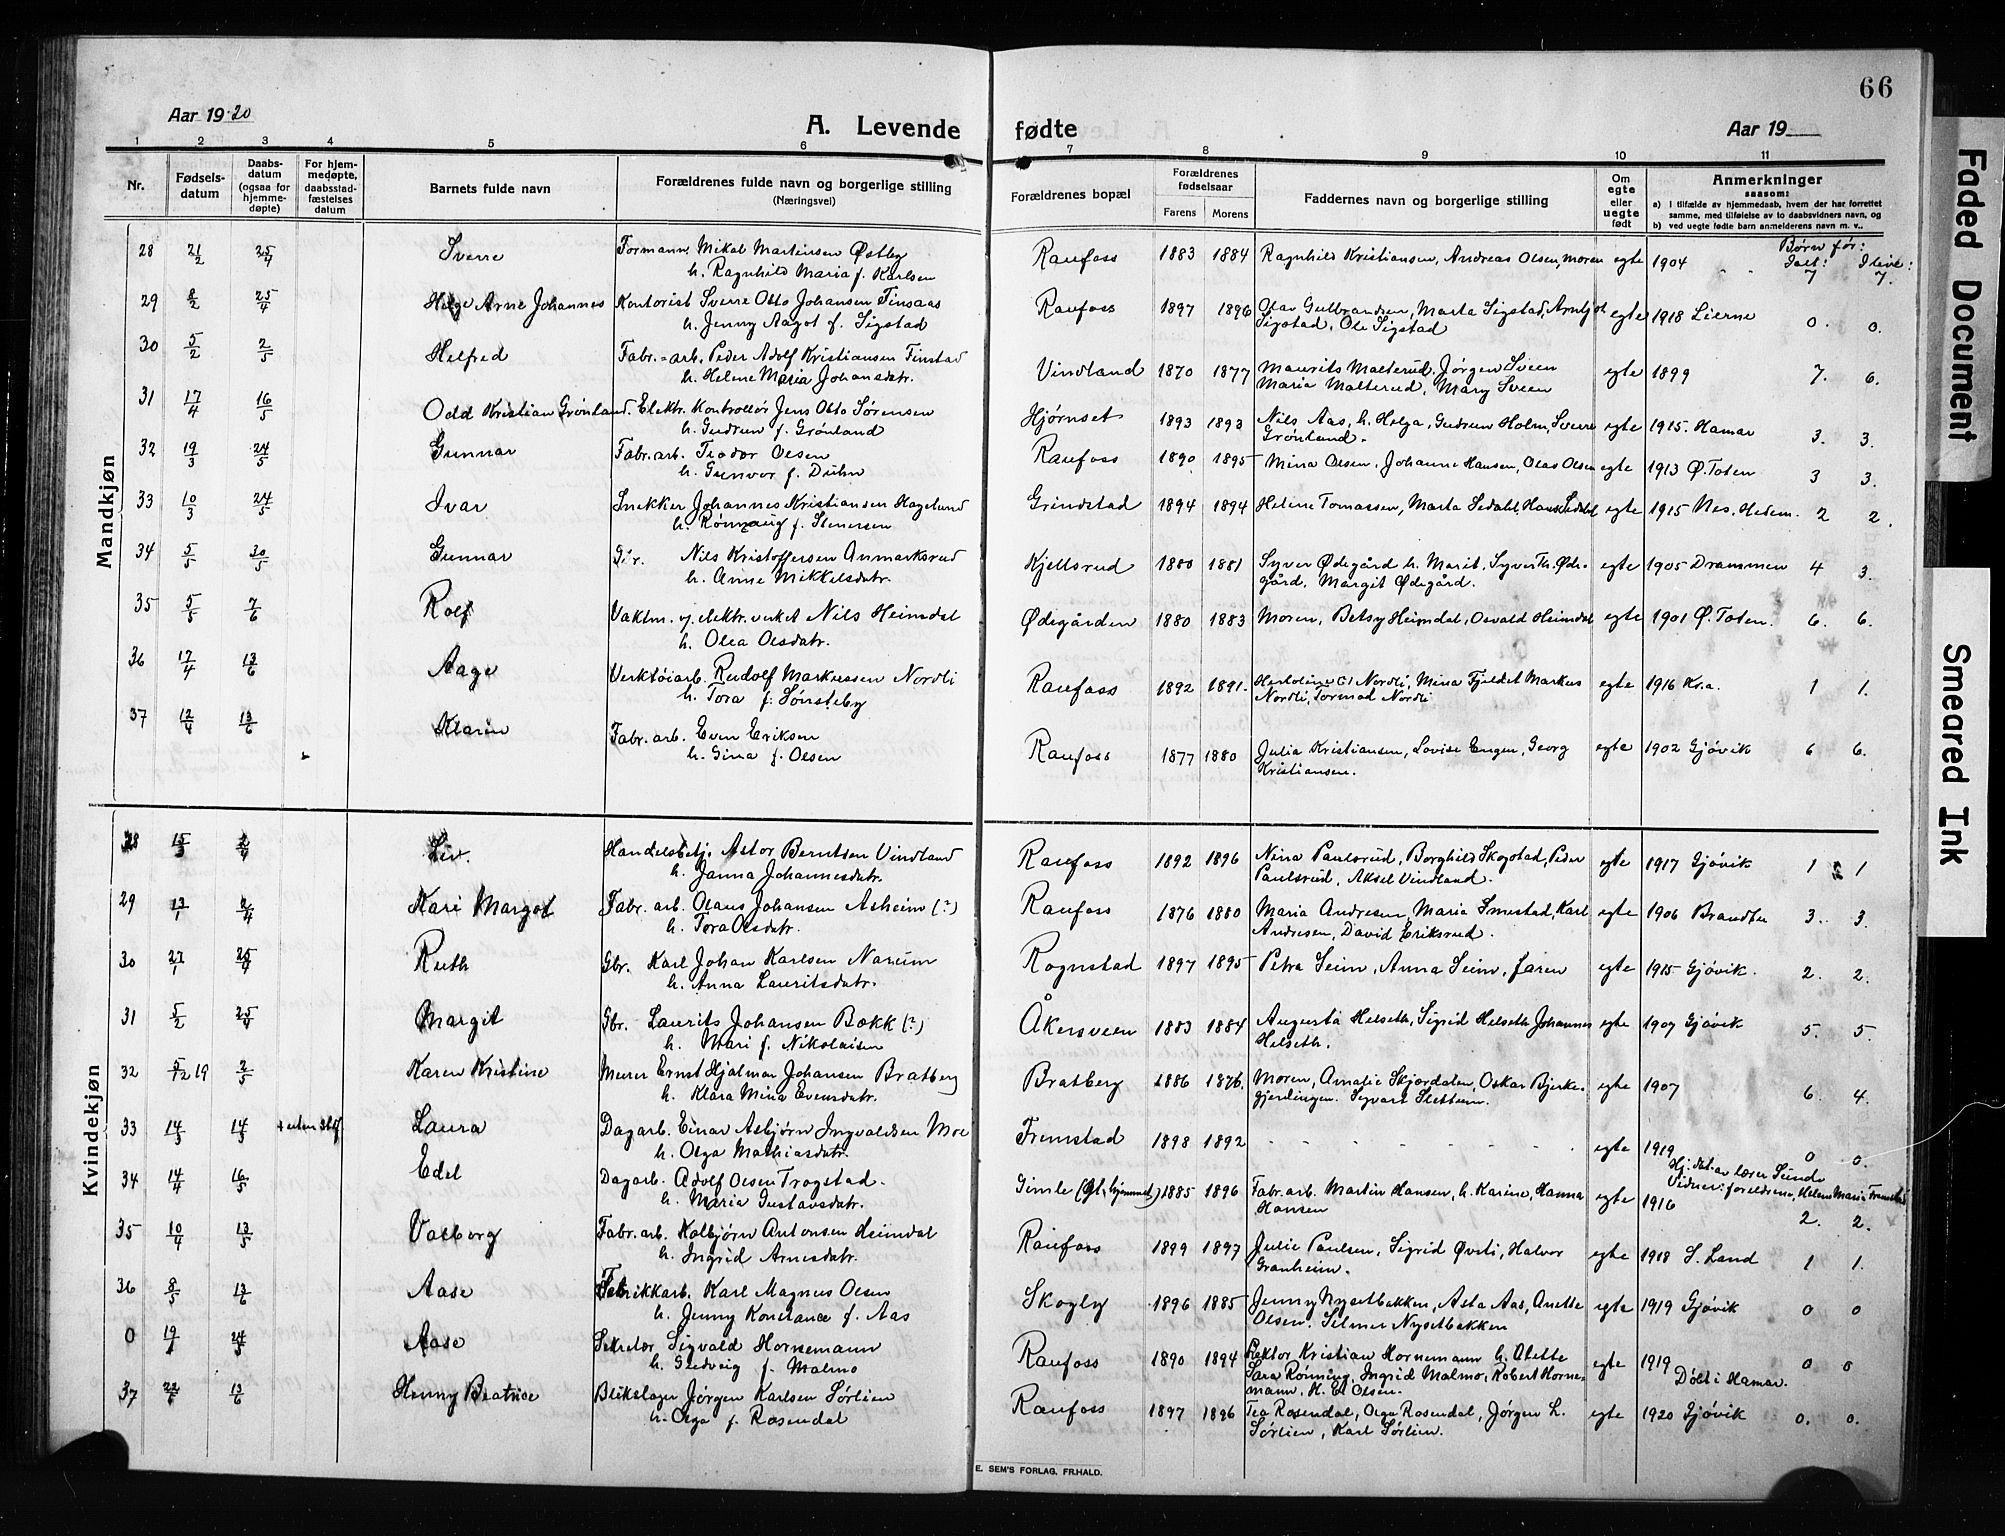 66
Aar 1920
A. Levende
fødte
Aar 19
1 2 3 4 5 6 7 8 9 10 11
Nr.
Fødselsdatum
Daabsdatum (ogsaa for hjemmedøpte)
For hjemmedøpte, daabsstadfæstelses datum
Barnets fulde navn
Forældrenes fulde navn og borgerlige stilling
(Næringsvei)
Forældrenes bopæl
Forældrenes fødselsaar
Farens Morens
Faddernes navn og borgerlige stilling
Om egte eller uegte født
Anmerkninger
saasom:
a) I tilfælde av hjemmedaab, hvem der har forrettet
samme, med tilføielse av to daabsvidners navn, og
b) ved uegte fødte barn anmelderens navn m. v..
Børn før:
Ialt: Ilive:
Mandkjøn
28 21/2 25/4 Sverre Formann Mikal Martinsen Østby Raufoss 1883 1884 Ragnhild Kristiansen, Andreas Olsen, moren egte 1904 7 7.
h. Ragnhild Maria f. Karlsen
29 8/2 25/4 Helge Arne Johannes Kontorist Sverre Otto Johansen Finsaas Raufoss 1897 1896 Olav Gulbrandsen, Marta Sigstad, Arnljot egte 1918 Lierne 0. 0.
h. Jenny Aagot f. Sigstad Sigstad, Ole Sigstad
30 5/2 2/5 Helfred Fabr.-arb. Peder Adolf Kristiansen Finstad Vindland 1870 1877 Maurits Malterud, Jørgen Sveen egte 1899 7. 6.
h. Helene Maria Johansdatr. Maria Malterud, Mary Sveen
31 17/4 16/5 Odd Kristian Grønland. Elektr. Kontrollør Jens Otto Sørensen Hjørnset 1893 1893 Nils Aas, h. Helga, Gudrun Holm, Sverre egte 1915. Hamar 3. 3.
h. Gudrun f. Grønland Grønland.
32 19/3 24/5 Gunnar Fabr.arb. Teodor Olsen Raufoss 1890 1895 Mina Olsen, Johanne Hansen, Olas Olsen egte 1913 Ø. Toten 3 3.
h. Gunvor f. Duhn
33 10/3 24/5 Ivar Snekker Johannes Kristiansen Hagelund Grindstad 1894 1894 Helene Tomassen, Marta Sedahl, Hans Sedahl egte 1915 Nes. Hedem. 2 2.
h. Rønnaug f. Stenersen
34 5/5 30/5 Gunnar Nils Kristoffersen Anmarksrud Kjellsrud 1880 1881 Syver Ødegård h. Marit, Syver Th. Øde- egte 1905 Drammen 4 3.
h. Anne Mikkelsdatr. gård, Margit Ødegård.
35 5/5 7/6 Rolf Vaktm. v. elektr. verket Nils Heimdal Ødegården 1880 1883 Moren, Betsy Heimdal, Osvald Heimdal egte 1901 Ø. Toten. 6. 6.
h. Olea Olsdatr.
36 17/4 13/6 Aage Verktøiarb. Rudolf Markussen Nordli Raufoss 1892 1891. Nordli, Mina Fjeldet Markus egte 1916 Kr.a. 1 1.
h. Tora f. Sønsteby Nordli, Tormod Nordli
37 12/4 13/6 Fabr. arb. Even Eriksen Raufoss 1877 1880 Julia Kristiansen, Lovise Engen, Georg egte 1902 Gjøvik 6 6.
h. Gina f. Olsen Kristiansen.
Kvindekjøn
28 15/3 2/4 Liv. Handelsbetj. Astor Berntsen Vindland Raufoss 1892 1896 Nina Paulsrud, Borghild Skogstad, Peder egte 1917 Gjøvik 1 1
h. Janna Johannesdatr. Paulsrud, Aksel Vindland.
29 Kari Margot Fabr. arb. Olaus Johansen Asheim (?) Raufoss 1876 1880 Maria Andresen, Maria Smestad, Karl egte 1906 Brandbu 3. 3.
h. Tora Olsdatr. Andresen, David Eriksrud.
30 27/1 25/4 Ruth Gbr. Karl Johan Karlsen Narum Rognstad 1897 1895 Petra Seim, Anna Seim, faren egte 1915 Gjøvik. 2. 2.
h. Anna Lauritsdatr.
31 5/2 25/4 Margit Gbr. Laurits Johansen Bækk (?) Åkersveen 1883 1884 Augusta Helseth, Sigrid Helseth, Johannes egte 1907 Gjøvik 5. 5.
h. Mari f. Nikolaisen Helseth.
32 8/12 19 2/5 Karen Kristine Murer Ernst Hjalmar Johansen Bratberg Bratberg 1886 1876. Moren, Amalie Skjærdalen, Oskar Bjerke- egte 1907 6. 4.
h. Klara Mina Evensdatr. gjerdingen. Sigvart Slettum.
33 14/3 14/3 + uten Laura Dagarb. Einar Asbjørn Ingvaldsen Moe Fremstad 1898 1892 - - - - - - egte 1919 0 0.
h. Olga Mathiasdatr. Hj. døbt av lærer Sunde
Vidner: forældrene, Helene Maria Fremstad
34 14/4 16/5 Edel Dagarb. Adolf Olsen Trogstad. Gimle (Gl. hjemmet) 1885 1896 Fabr. arb. Martin Hansen, h. Karine, Hanna egte 1916 2. 2.
h. Maria Gustavsdatr. Hansen
35 10/4 13/5 Valborg Fabr. arb. Kolbjørn Antonsen Heimdal Raufoss 1899 1897 Julie Paulsen, Sigrid Øvsti, Halvor egte 1918 S. Land 1 1.
h. Ingrid Arnesdatr. Granheim.
36 8/5 13/6 Aase Fabrikkarb. Karl Magnus Olsen Skogly 1896 1885 Jenny Nysetbakken, Asta Aas, Anette egte 1919 Gjøvik 0 0
h. Jenny Konstance f. Aas Olsen. Selmer Nysetbakken
0 Aase Sekretær Sigvald Hornemann Raufoss 1890 1894 Lektor Kristian Hornemann h. Alette egte 1919 0 0
h. Gudveig f. Malmo Sara Rønning, Ingrid Malmo, Robert Horne- Døbt i Hamar.
mann, H. El. Olsen.
37 13/6 Henny Beatrice Blikslager Jørgen Karlsen Sørlien Raufoss 1897 1896 Tea Rosendal, Olga Rosendal, Jørgen L. egte 1920 Gjøvik 0. 0.
h. Olga f. Rosendal Sørlien, Karl Sørlien.
E. SEM'S FORLAG, FR.HALD.
Faded Document
Smeared Ink